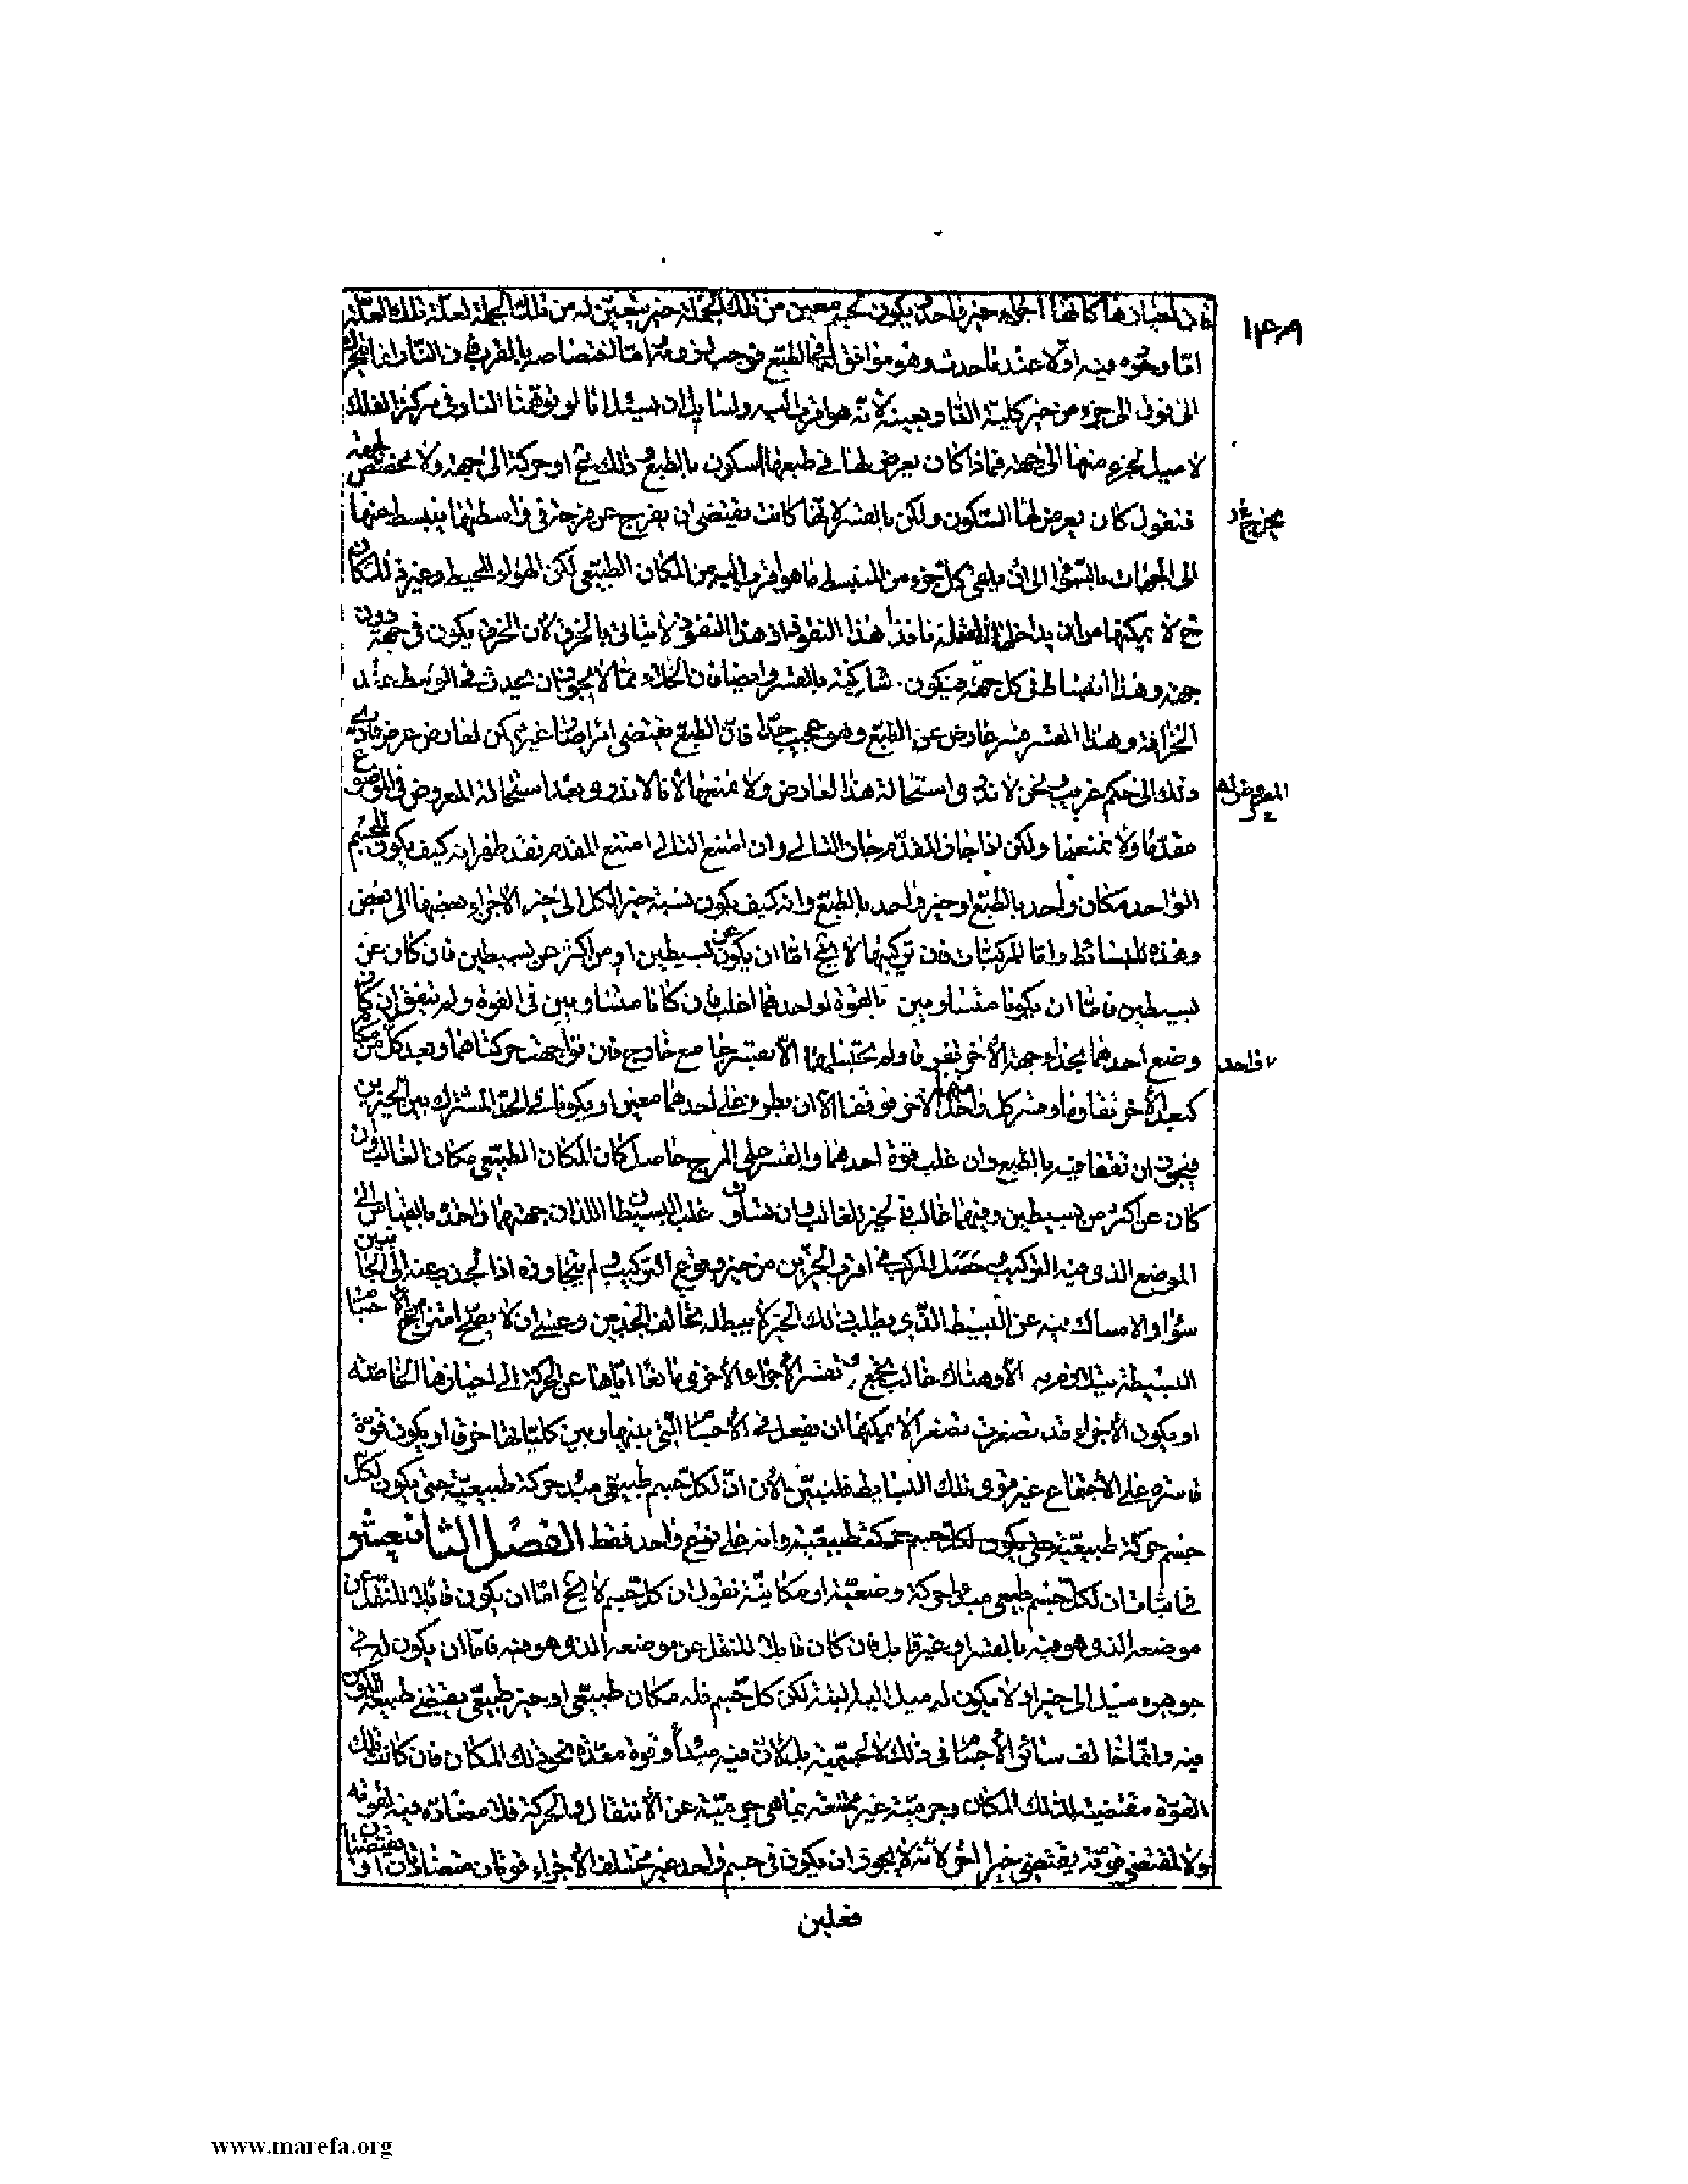 ١٤٩
فان احيازها كانها اجزاء حيز واحد يكون لحيز معين من تلك الجملة حيز يتعين له من تلك الجملة لعلة تلك العلة
اما وجوده فيه اولا عند ما حدث وهو موافق له في الطبع فوجب لزومه اما اختصاصه بالقرب فان النار انما تتحرك
الى فوق الى جزء من حيز كلية النار بعينه لانه هو اقرب اليه ولسائل ان يسئل انا لو توهمنا النار في مركز الفلك
لا ميل لجزء منها الى جهة فماذا كان يعرض لها في طبعها السكون بالطبع وذلك مح او حركة الى جهة ولا مخصص لجهة
فنقول كان يعرض لها السكون ولكن بالقسر لانها كانت تقتضى ان ينفرج عن فرجة في واسطتها ينبسط عنها
الى الجهات بالسواء الى ان يلقى كل جزء من المنبسط ما هو اقرب اليه من المكان الطبيعى لكن الهواء المحيط وغير ذلك كان
مح لا يمكنها من ان يداخلها نافذا هذا النفوذ اذ هذا النفوذ لا يتاتى بالخرق لان الخرق يكون فى جهة دون
جهة وهذا انبساط فى كل جهة فيكون ساكنة بالقسر وايضا فان الخلاء مما لا يجوز ان يحدث فى الوسط عند
وهذا القسر قسر عارض عن الطبع وهو عجيب جدا فان الطبع يقتضى امرا صار غير ممكن لعارض عرض فادى
ذلك الى حكم غريب نحن لا ندرى استحالة هذا العارض ولا نمنعها لانا لا ندرى بعد استحالة المعروض فى الموضوع
المعروض له
مقدما ولا نمنعها ولكن اذا جاز المقدم جاز التالى وان امتنع التالى امتنع المقدم فقد ظهر انه كيف يكون للجسم
الواحد مكان واحد بالطبع او حيز واحد بالطبع وانه كيف يكون نسبة حيز الكل الى حيز الاجزاء بعضها الى بعض
وهذه للبسائط واما المركبات فان تركيبها لا يخ اما ان يكون عن بسيطين او من اكثر من بسيطين فان كان عن
بسيطين فاما ان يكونا متساويين بالقوة او احدهما اغلب فان كانا متساويين فى القوة ولم يتفق ان كان
وضع احدهما بحذاء جهة الاخر تفرقا ولم يحتبسا معا الا بقسر جامع خارج فان تواجهت حركتاهما وبعد كل من مكانه
واحد
كبعد الاخر تقاوما وقسر كل واحد منهما الاخر فوقفا الا ان يطرء على احدهما معين او يكونا فى الحد المشترك بين الحيزين
فيجوز ان تقفا فيه بالطبع وان غلب قوة احدهما والقسر على المزج حاصل كان المكان الطبيعى مكان الغالب وان
كان عن اكثر من بسيطين وفيها غالب فالحيز للغالب وان تساوت غلب البسيطان اللذان جهتهما واحدة بالقياس الى
الموضع الذى فيه التركيب وحصل المركب فى اقرب الحيزين من حيز وقوع التركيب ولم يتجاوزه اذا الجذب عنه الى الجانبين
سواء والامساك فيه عن البسيط الذى يطلب ذلك الحيز لا يبطله تخالف الجذبين وعسى ان لا يصح امتزاج من الاجسام
البسيطة الا وهناك غالب يجمع بقسر الاجزاء الاخرى مانعا اياها عن الحركة الى احيازها الخاصة
او يكون الاجزاء قد تصغرت تصغرا لا يمكنها ان يفعل فى الاجسام التى بينها وبين كلياتها خرقا او يكون قوة
قاسرة على الاجتماع غير قوى تلك البسايط فلنبين الان ان لكل جسم طبيعى مبدء حركة طبيعية حتى يكون لكل
جسم حركة طبيعية حتى يكون لكل جسم حركة طبيعية وانه على نوع واحد فقط الفصل الثانى عشر
فى اثبات ان لكل جسم طبيعى مبدء حركة وضعية او مكانية نقول ان كل جسم لا يخ اما ان يكون قابلا للنقل عن
موضعه الذى هو فيه بالقسر او غير قابل فان كان قابلا للنقل عن موضعه الذى هو فيه فاما ان يكون له فى
جوهره ميل الى حيز او لا يكون له ميل اليه البتة لكن كل جسم فله مكان طبيعى او حيز طبيعى يقتضى طبيعته الكون
فيه وانما خالف سائر الاجسام فى ذلك لا لجسمية بل لان فيه مبدأ وقوة معدة نحو ذلك المكان فان كانت تلك
القوة مقتضية لذلك المكان وجرميته غير ممتنعة بما هى جرمية عن الانتقال والحركة فلا مضادة فيه لقوته
ولا لمقتضى قوته يقتضى حيزا اخر لانه لا يجوز ان يكون فى جسم واحد غير مختلف الاجزاء قوتان متضادتان او يقتضيان
فعلين
www.marefa.org